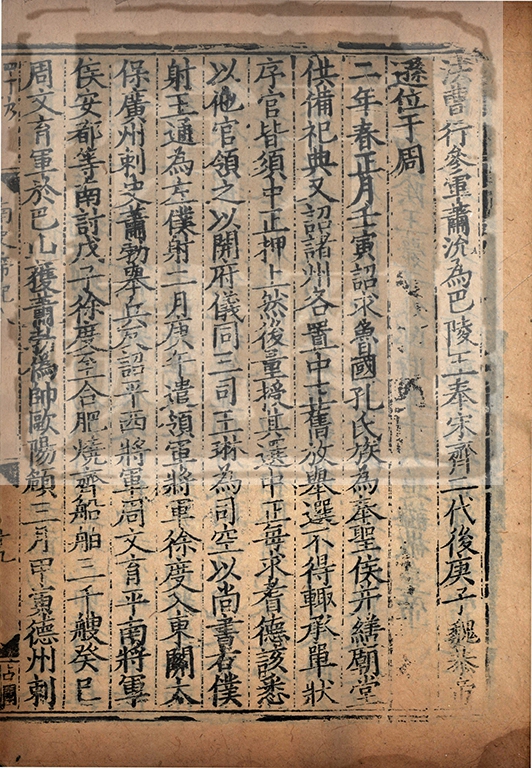 法曹行參軍蕭沇為巴陵王奉宋齊二代後庚子魏恭帝
遜位于周
二年春正月壬寅詔求魯國孔氏族為奉聖侯并繕廟堂
供備祀典又詔諸州各置中正舊放舉選不得輒承單狀
序官皆須中正押上然後量授其選中正每求耆德該悉
以他官領之以開府儀同三司王琳為司空以尚書右僕
射王通為左僕射二月庚午遣領軍將軍徐度入東關太
保廣州刺史蕭勃舉兵反詔平西將軍周文育平南將軍
侯安都等南討戊子徐度至合肥燒齊船舶三千艘癸巳
周文育軍於巴山獲蕭勃偽帥歐陽頠三月甲寅德州刺
南史帝紀八